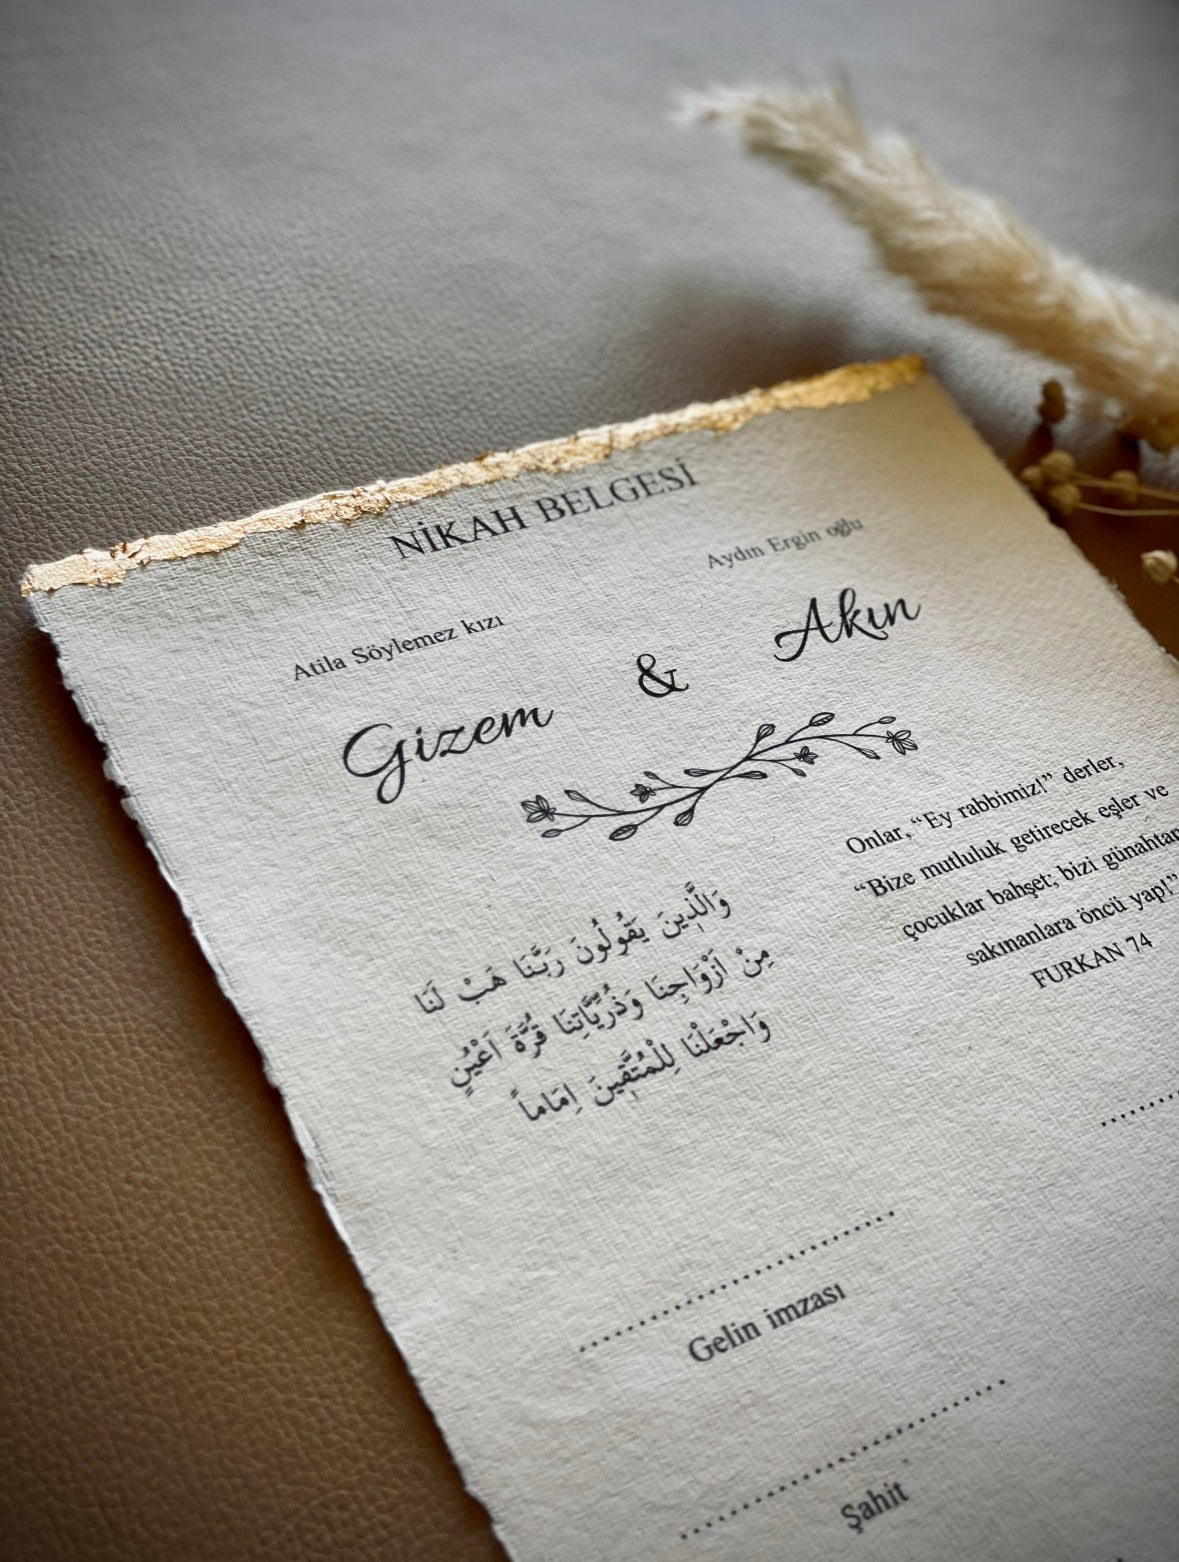 NİKAH BELGESİ
Atila Söylemez kızı
Aydın Ergin oğlu
Gizem & Akın
وَالَّذ۪ينَ يَقُولُونَ رَبَّنَا هَبْ لَنَا
مِنْ اَزْوَاجِنَا وَذُرِّيَّاتِنَا قُرَّةَ اَعْيُنٍ
وَاجْعَلْنَا لِلْمُتَّق۪ينَ اِمَاماً
Onlar,“Ey rabbimiz!” derler,
“Bize mutluluk getirecek eşler ve
çocuklar bahşet; bizi günahtan
sakınanlara öncü yap!”
FURKAN 74
Gelin imzası
Şahit